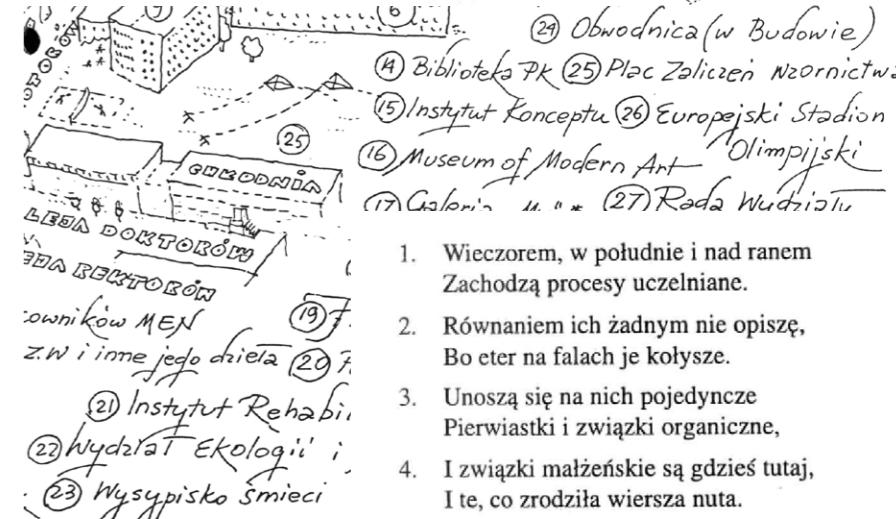 7
6
24 Obwodnica (w Budowie)
14 Biblioteka PK 25 Plac Zaliczeń Wzornictwa
15 Instytut Konceptu 26 Europejski Stadion
16 Museum of Modern Art Olimpijski
17 Galeria 27 Rada Wydziału
25
CHŁODNIA
LEJA DOKTORÓW
EJA REKTORÓW
cowników MEN 19
Z.W i inne jego dzieła 20
21 Instytut Rehabi
22 Wydział Ekologii i
23 Wysypisko śmieci
1. Wieczorem, w południe i nad ranem
Zachodzą procesy uczelniane.
2. Równaniem ich żadnym nie opiszę,
Bo eter na falach je kołysze.
3. Unoszą się na nich pojedyncze
Pierwiastki i związki organiczne,
4. I związki małżeńskie są gdzieś tutaj,
I te, co zrodziła wiersza nuta.